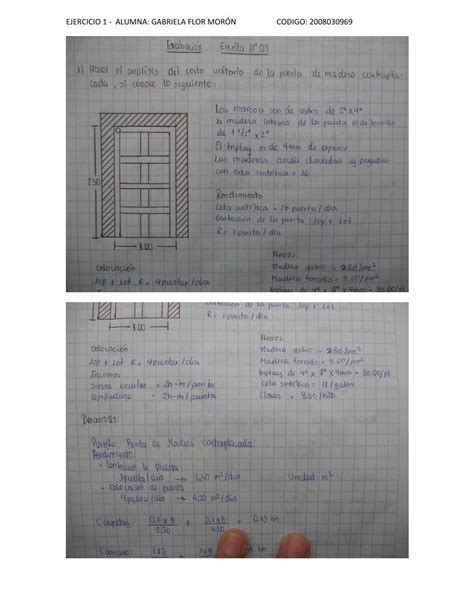 EJERCICIO 1 - ALUMNA: GABRIELA FLOR MORÓN CODIGO: 2008030969
Evaluación Escrita N° 03
1) Hacer el análisis del costo unitario de la puerta de madera contrapla-
cada, si conoce lo siguiente:
Los marcos son de cedro de 2" x 4"
la madera interna de la puerta es de tornillo
de 1 1/2" x 2"
El triplay es de 4mm de espesor
Las maderas serán clavadas y pegadas
con cola sintética = 16
2.30
1.00
Rendimiento
Cola sintética = 16 puerta / dia
Confección de la puerta 1op + 1of
R = 1 puerta / dia
Colocación
1op + 1of R = 4 puertas / dia
Precios
Madera cedro = /pie²
Madera tornillo = 3.00/pie²
triplay de 4" x 8" x 4mm = 30.00/pl
confección de la puerta 1op + 1of
R = 1 puerta / dia
1.00
Colocación
1op + 1of R = 4 puertas / dia
Insumos
sierra circular = 2h-m / puerta
cepilladura = 2h-m / puerta
Precios
Madera cedro = /pie²
Madera tornillo = 3.00/pie²
triplay de 4" x 8" x 4mm = 30.00/pl
Cola sintética = /galon
Clavos = 8.00 / kilo
Desarrollo:
Partida Puerta de Madera contraplacada
Rendimiento:
- Confección de puerta
1 puerta / dia → 2.30 m² / dia Unidad: m²
- Colocación de puerta
4 puerta / dia → 9.20 m² / dia
Capataz: 0.1 x 8 / 2.30 + 0.1 x 8 / 9.20 = hh
Operario: 1 x 8 1 x 8 hh